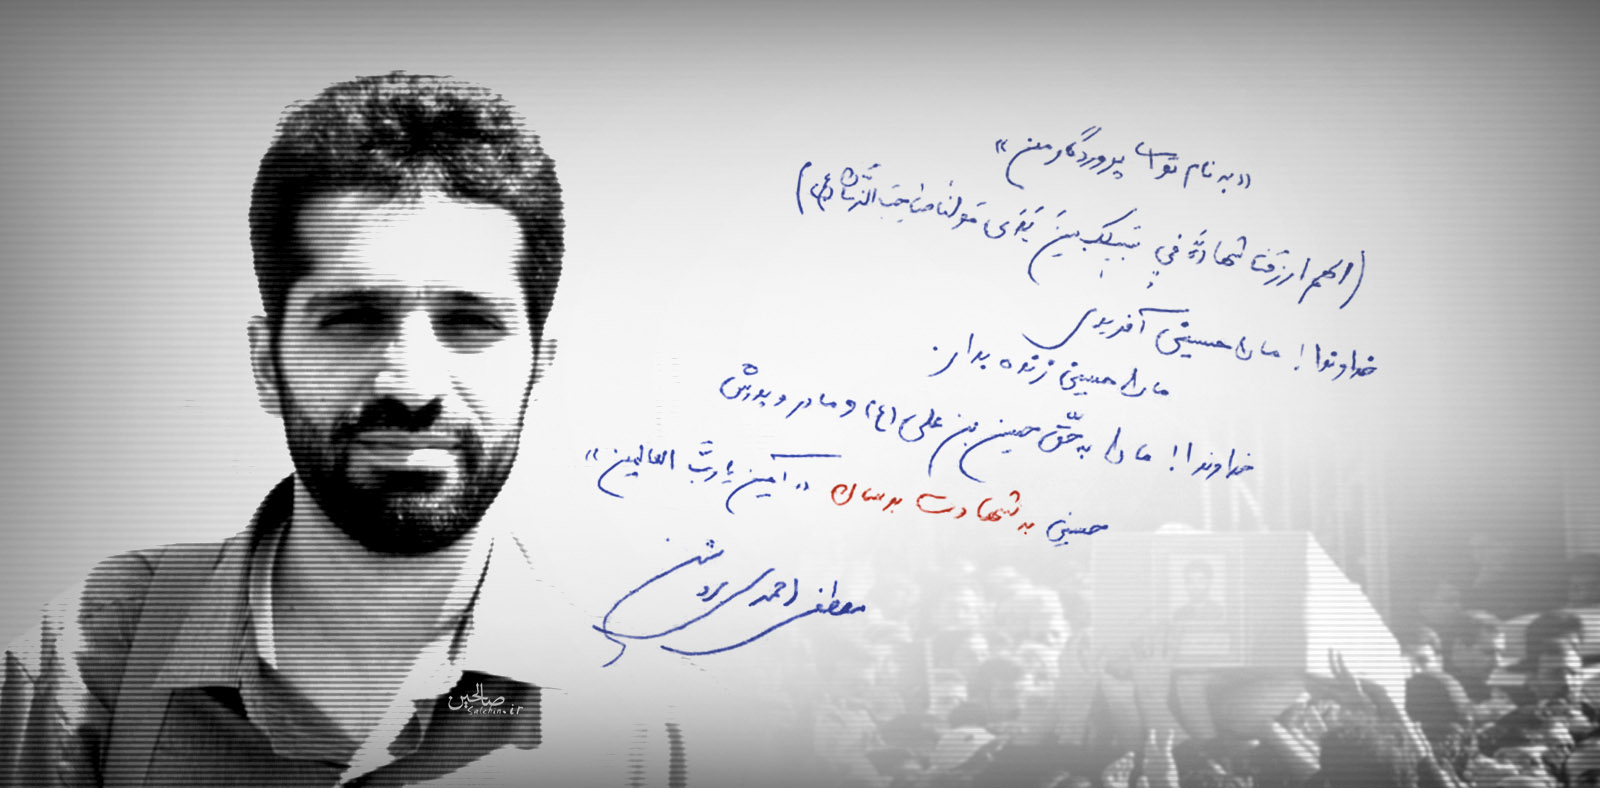 «به نام تو ای پروردگار من»
(الهم ارزقنا شهادة في سبیلک بین یَدَی مَولانا صاحِبَ الزَّمان (عج))
خداوندا! ما را حسینی آفریدی
ما را حسینی زنده بدار.
خداوندا! ما را به حَقّ حسین بن علی (ع) و مادر و پدرش
حسینی به شهادت برسان «آمین یا رَبَّ العالمین»
مصطفی احمدی روشن
صالحین
Salehin.ir